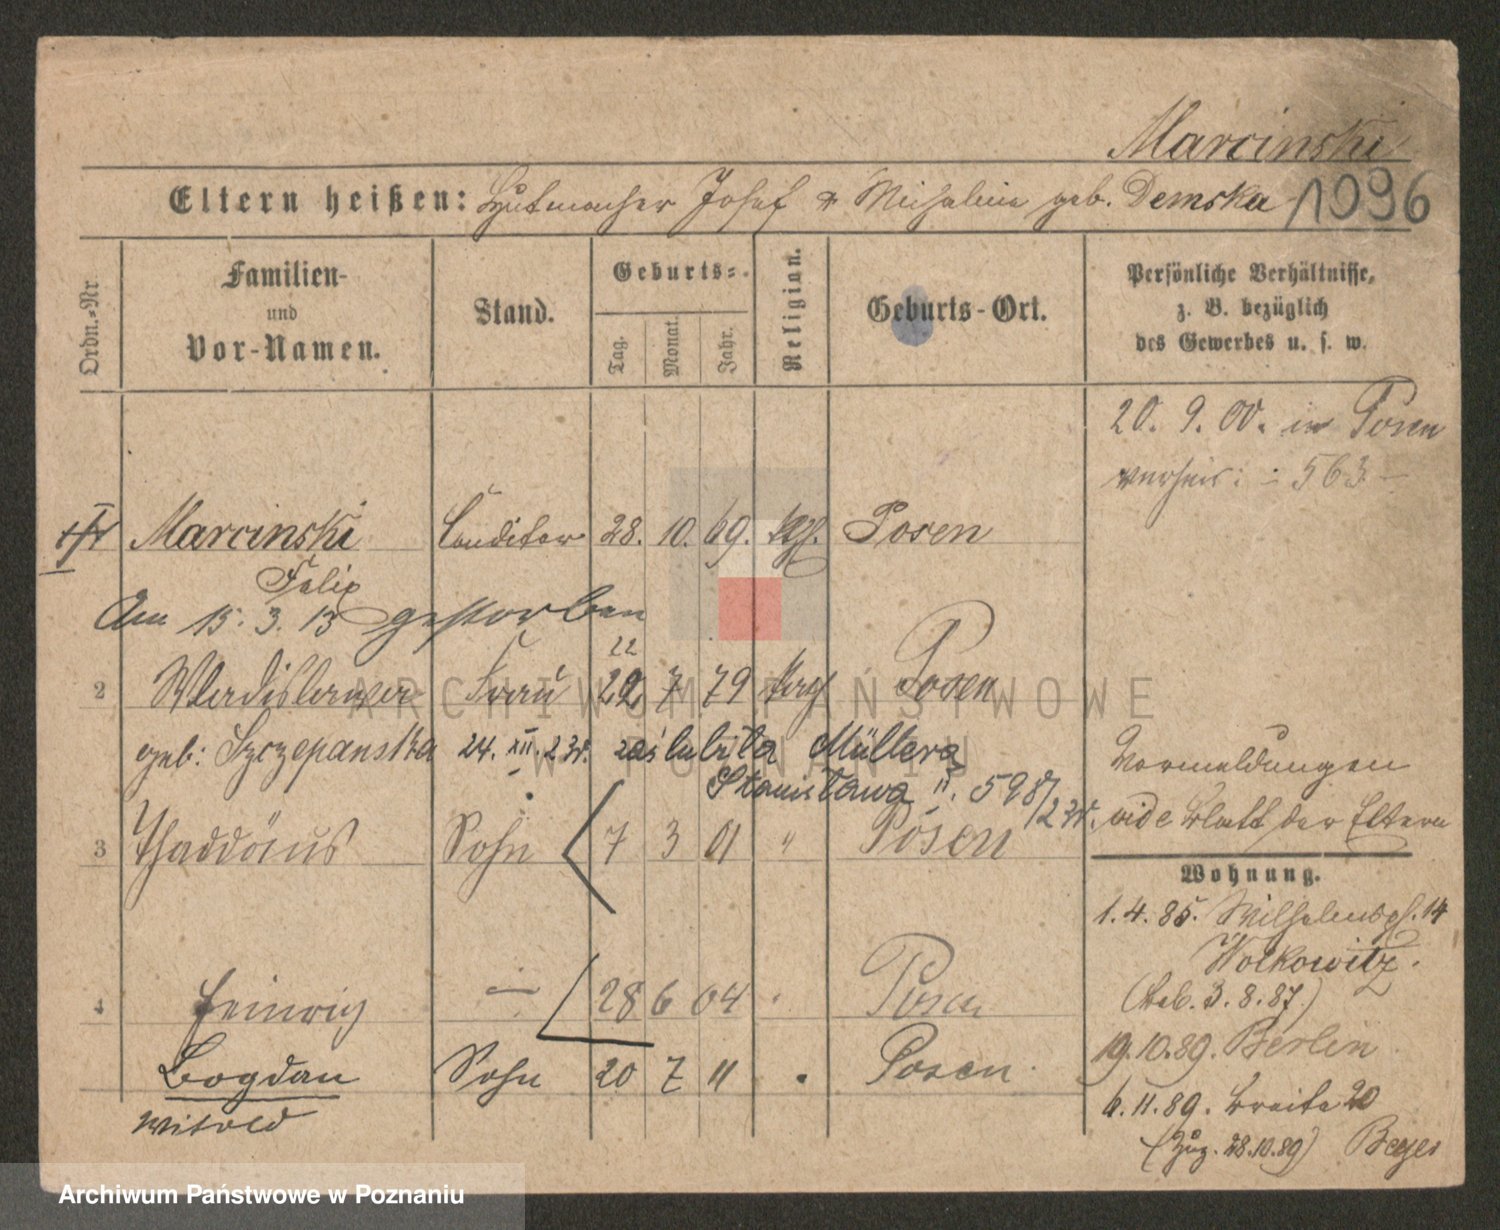 Marcinski
Eltern heißen: Hutmacher Josef u Michalina geb. Demska 1096
Ordn.=Nr.
Familien-
und
Vor-Namen.
Stand.
Geburts=
Tag.
Monat.
Jahr.
Religion.
Geburts-Ort.
Persönliche Verhältnisse,
z. B. bezüglich
des Gewerbes u. s. w.
20. 9. 00. in Posen
verheir: 563
Marcinski Conditor 28. 10. 69. kath. Posen
Felix
Am 15. 3. 13 gestorben
22
2 Wladislawa Frau 7 79 Posen
geb: Szczepanska 24. XII. 23r. zaślubiła Müllera
Stanisława 598/23r.
3 Thaddäus Sohn 7 3 01 " Posen
Vermeldungen
vide Blatt der Eltern
Wohnung.
1. 4. 85. Wilhelmspl. 14
Wolkowitz.
3. 8. 87.)
4 Heinrich — 28 6 04 Posen
19. 10. 89. Berlin
Bogdan Sohn 20 7 11 Posen
Witold
6. 11. 89. Breite 20
(Zug. 28.10.89) Beyer
ARCHIWUM PAŃSTWOWE
W POZNANIU
Archiwum Państwowe w Poznaniu